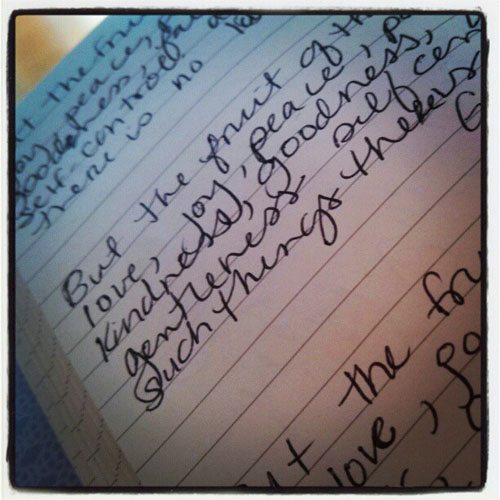 t the fru
oy, peace, pa
goodness, fai
self-control. a
there is no
But the fruit of th
love, joy, peace, pa
kindness, goodness,
gentleness self con
such things there is
t the fru
love, jo